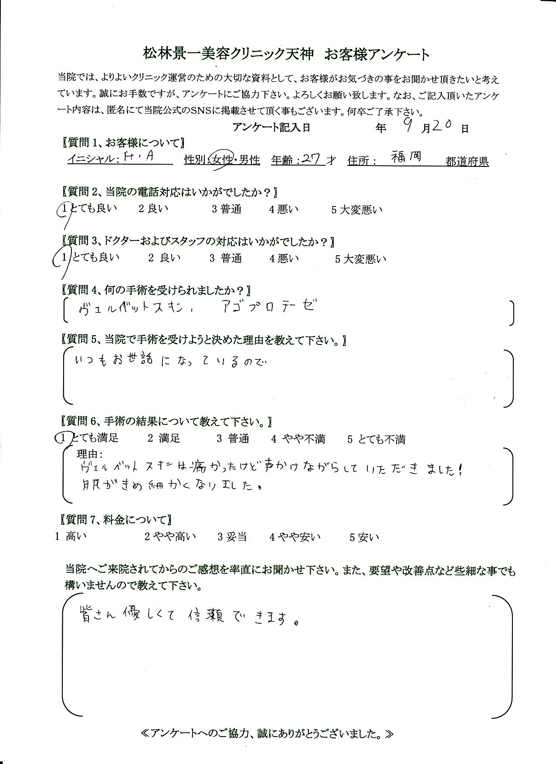 松林景一美容クリニック天神　お客様アンケート
当院では、よりよいクリニック運営のための大切な資料として、お客様がお気づきの事をお聞かせ頂きたいと考え
ています。誠にお手数ですが、アンケートにご協力下さい。よろしくお願い致します。なお、ご記入頂いたアンケ
ート内容は、匿名にて当院公式のSNSに掲載させて頂く事もございます。何卒ご了承下さい。
アンケート記入日　年 9 月 20 日
【質問1、お客様について】
イニシャル：H・A　性別：女性・男性　年齢：27才　住所：福岡　都道府県
【質問2、当院の電話対応はいかがでしたか？】
1 とても良い　2 良い　3 普通　4 悪い　5 大変悪い
【質問3、ドクターおよびスタッフの対応はいかがでしたか？】
1 とても良い　2 良い　3 普通　4 悪い　5 大変悪い
【質問4、何の手術を受けられましたか？】
ヴェルベットスキン、　アゴプロテーゼ
【質問5、当院で手術を受けようと決めた理由を教えて下さい。】
いつもお世話になっているので
【質問6、手術の結果について教えて下さい。】
1 とても満足　2 満足　3 普通　4 やや不満　5 とても不満
理由：
ヴェルベットスキンは痛かったけど声かけながらしていただきました！
肌がきめ細かくなりました。
【質問7、料金について】
1 高い　2 やや高い　3 妥当　4 やや安い　5 安い
当院へご来院されてからのご感想を率直にお聞かせ下さい。また、要望や改善点など些細な事でも
構いませんので教えて下さい。
皆さん優しくて信頼できます。
≪アンケートへのご協力、誠にありがとうございました。≫